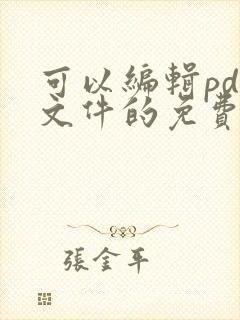 可以編輯pd
文件的免費
張金平